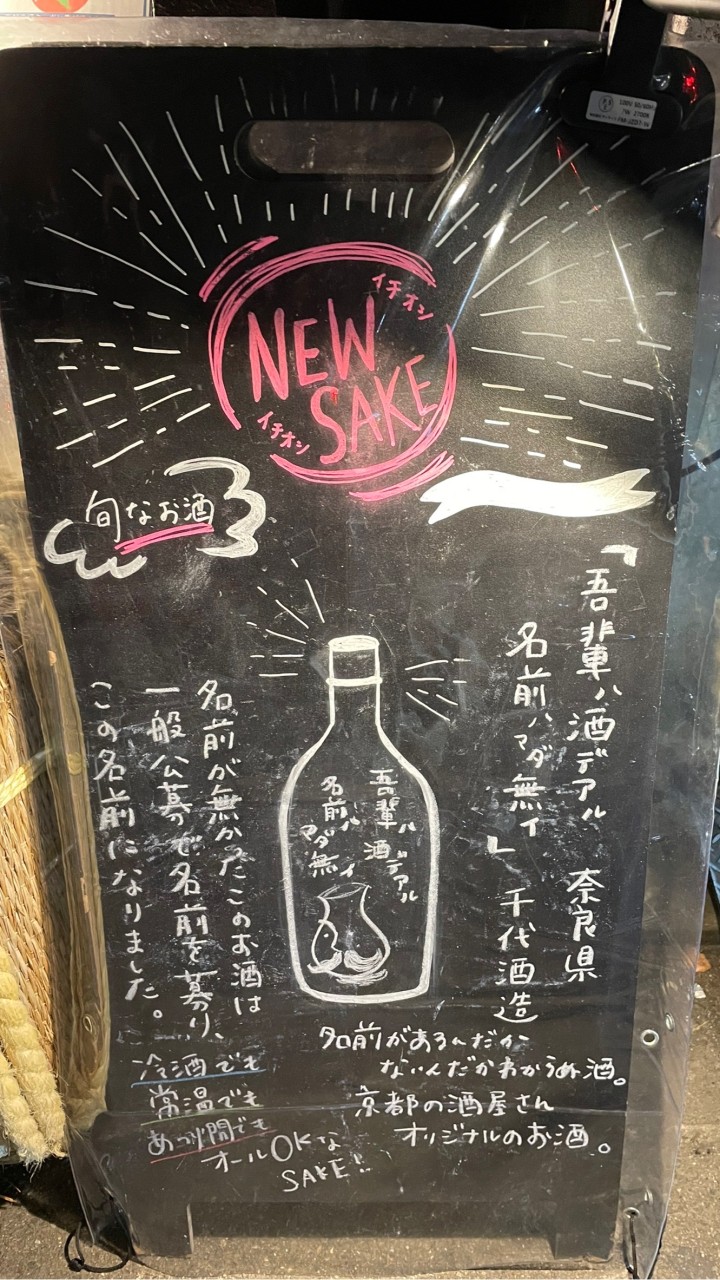 イチオシ
NEW
SAKE
イチオシ
旬なお酒
「吾輩ハ酒デアル
名前ハマダ無イ」
奈良県
千代酒造
吾輩ハ
酒デアル
名前ハ
マダ無イ
名前が無かったこのお酒は
一般公募で名前を募り、
この名前になりました。
名前があるんだか
ないんだかわからぬ酒。
京都の酒屋さん
オリジナルのお酒。
冷酒でも
常温でも
あつ燗でも
オールOKな
SAKE!